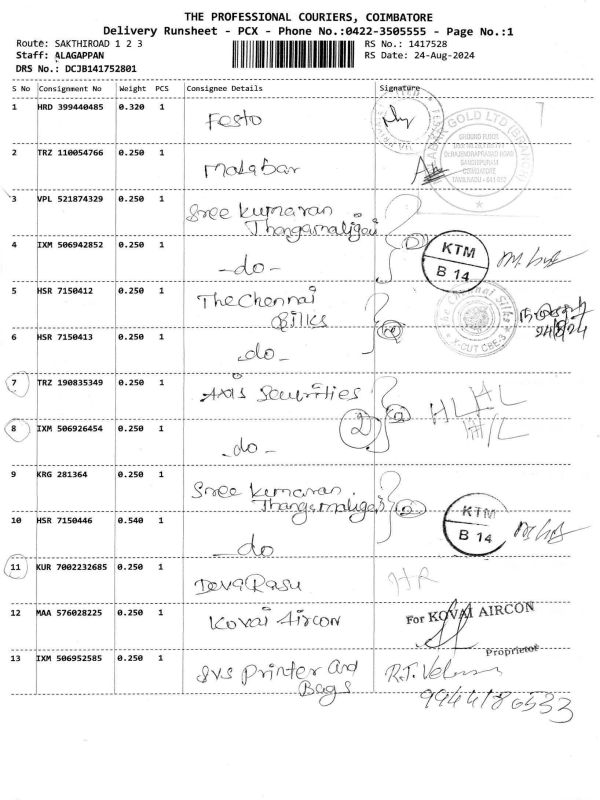 THE PROFESSIONAL COURIERS, COIMBATORE
Delivery Runsheet - PCX - Phone No.:0422-3505555 - Page No.:1
Route: SAKTHIROAD 1 2 3 RS No.: 1417528
Staff: ALAGAPPAN RS Date: 24-Aug-2024
DRS No.: DCJB141752801
S No Consignment No Weight PCS Consignee Details Signature
1 HRD 399440485 0.320 1 Festo
2 TRZ 110054766 0.250 1 Malabar
3 VPL 521874329 0.250 1 Sree Kumaran
Thangamaligai
4 IXM 506942852 0.250 1 -do- KTM
B 14
5 HSR 7150412 0.250 1 The Chennai
Silks
6 HSR 7150413 0.250 1 -do- 24/8/24
7 TRZ 190835349 0.250 1 Axis Securities HL
8 IXM 506926454 0.250 1 -do- 2
9 KRG 281364 0.250 1 Sree Kumaran
Thangamaligai
10 HSR 7150446 0.540 1 -do KTM
B 14
11 KUR 7002232685 0.250 1 DevaRasu HR
12 MAA 576028225 0.250 1 Kovai Aircon For KOVAI AIRCON
Proprietor
13 IXM 506952585 0.250 1 SVS Printer and
Bags
9944186533